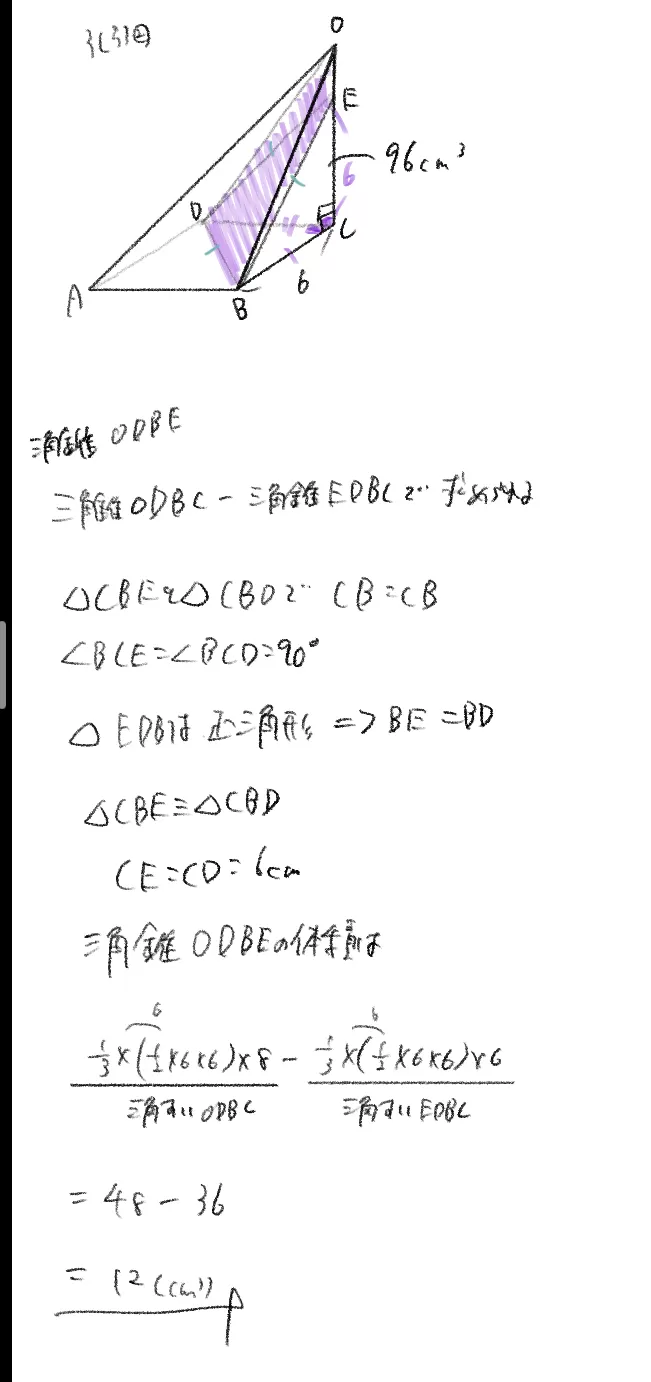 O
E
96cm³
6
D
C
6
A
B
三角錐ODBE
三角錐ODBC－三角錐EDBCで 求められる
△CBEと△CBDで CB=CB
∠BCE=∠BCD=90°
△EDBは 正三角形 => BE=BD
△CBE≡△CBD
CE=CD=6cm
三角錐ODBEの体積は
6 6
1/3×(1/2×6×6)×8 － 1/3×(1/2×6×6)×6
三角すいODBC 三角すいEDBC
= 48 － 36
= 12 (cm³)